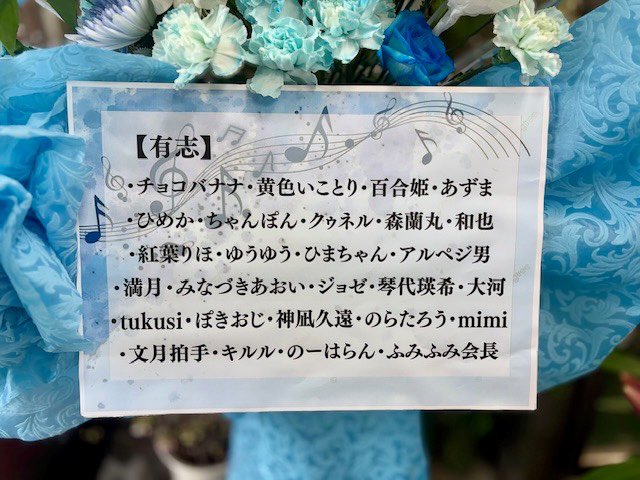 【有志】
・チョコバナナ・黄色いことり・百合姫・あずま
・ひめか・ちゃんぽん・クゥネル・森蘭丸・和也
・紅葉りほ・ゆうゆう・ひまちゃん・アルペジ男
・満月・みなづきあおい・ジョゼ・琴代瑛希・大河
・tukusi・ぽきおじ・神凪久遠・のらたろう・mimi
・文月拍手・キルル・のーはらん・ふみふみ会長